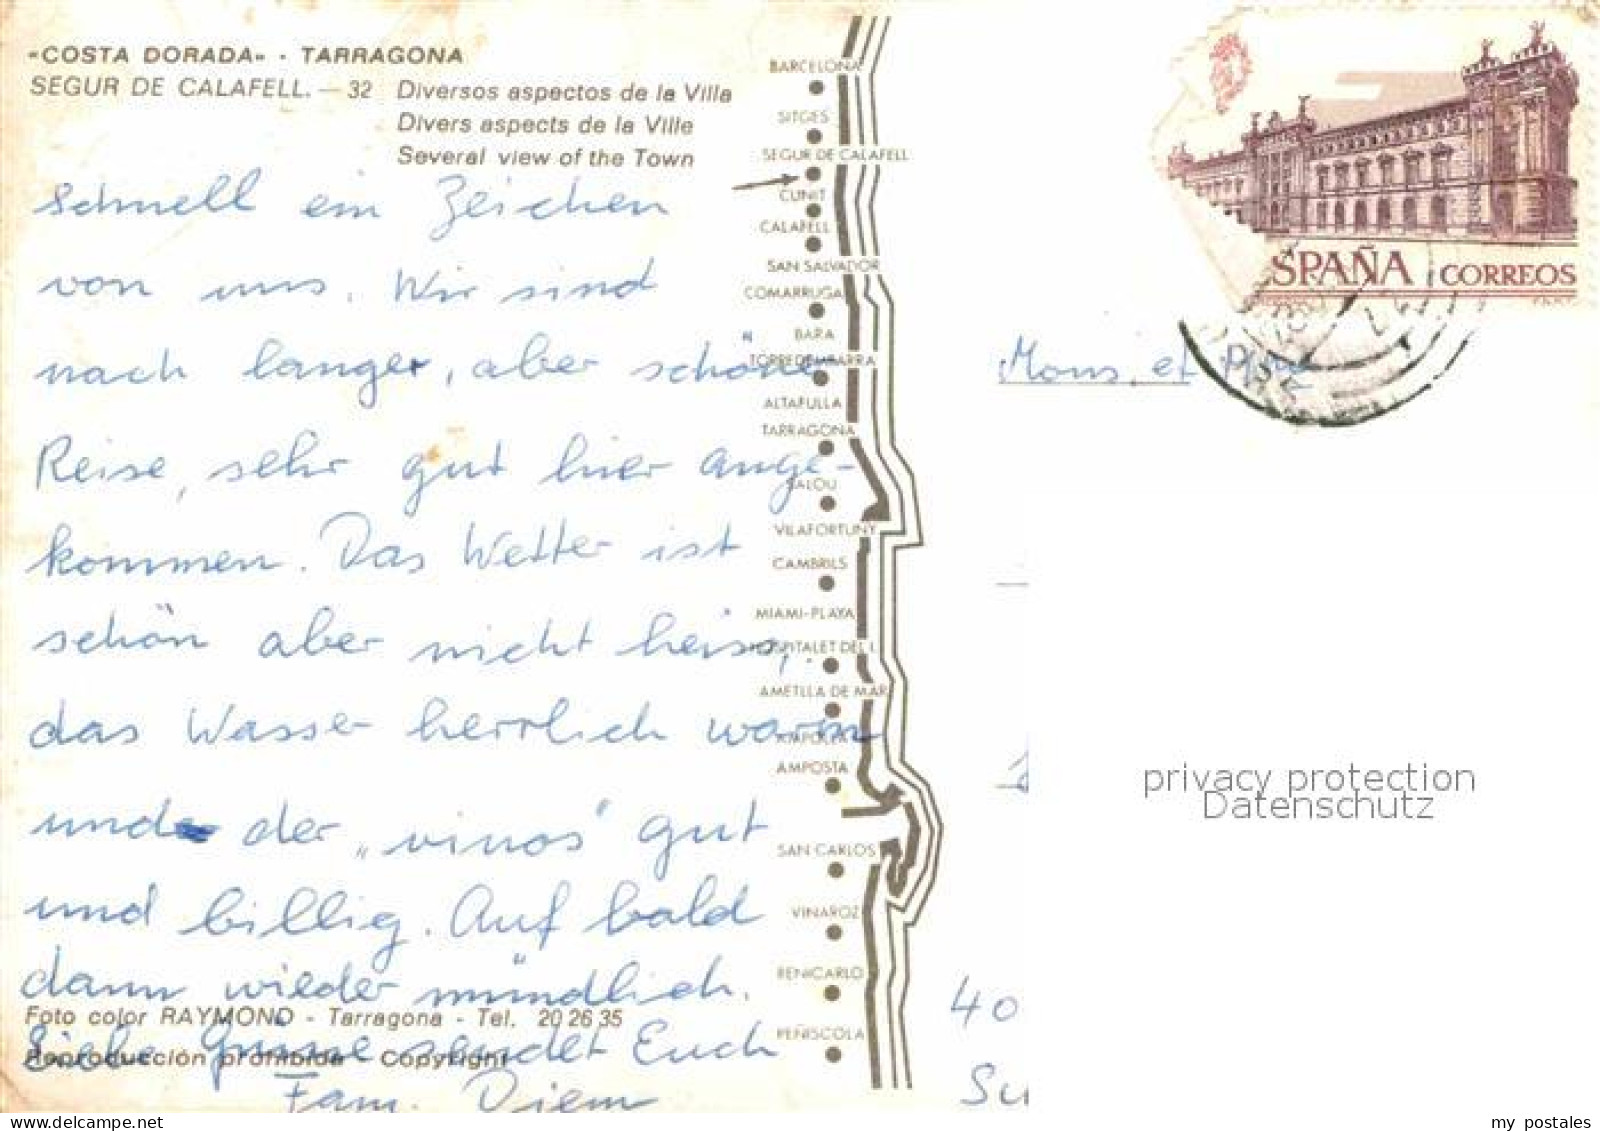 «COSTA DORADA» - TARRAGONA
SEGUR DE CALAFELL. — 32 Diversos aspectos de la Villa
Divers aspects de la Ville
Several view of the Town
Schnell ein Zeichen
von uns. Wir sind
nach langer, aber schöner
Reise, sehr gut hier ange-
kommen. Das Wetter ist
schön aber nicht heiss,
das Wasser herrlich warm
und der „vinos“ gut
und billig. Auf bald
dann wieder mündlich.
Liebe Grüsse sendet Euch
Fam. Diem
Foto color RAYMOND - Tarragona - Tel. 20 26 35
Reproducción prohibida - Copyright
BARCELONA
SITGES
SEGUR DE CALAFELL
CUNIT
CALAFELL
SAN SALVADOR
COMARRUGA
BARA
TORREDEMBARRA
ALTAFULLA
TARRAGONA
SALOU
VILAFORTUNY
CAMBRILS
MIAMI-PLAYA
HOSPITALET DEL I.
AMETLLA DE MAR
AMPOLLA
AMPOSTA
SAN CARLOS
VINAROZ
BENICARLO
PEÑISCOLA
ESPAÑA CORREOS
Mons. et Mme
40
privacy protection
Datenschutz
my postales